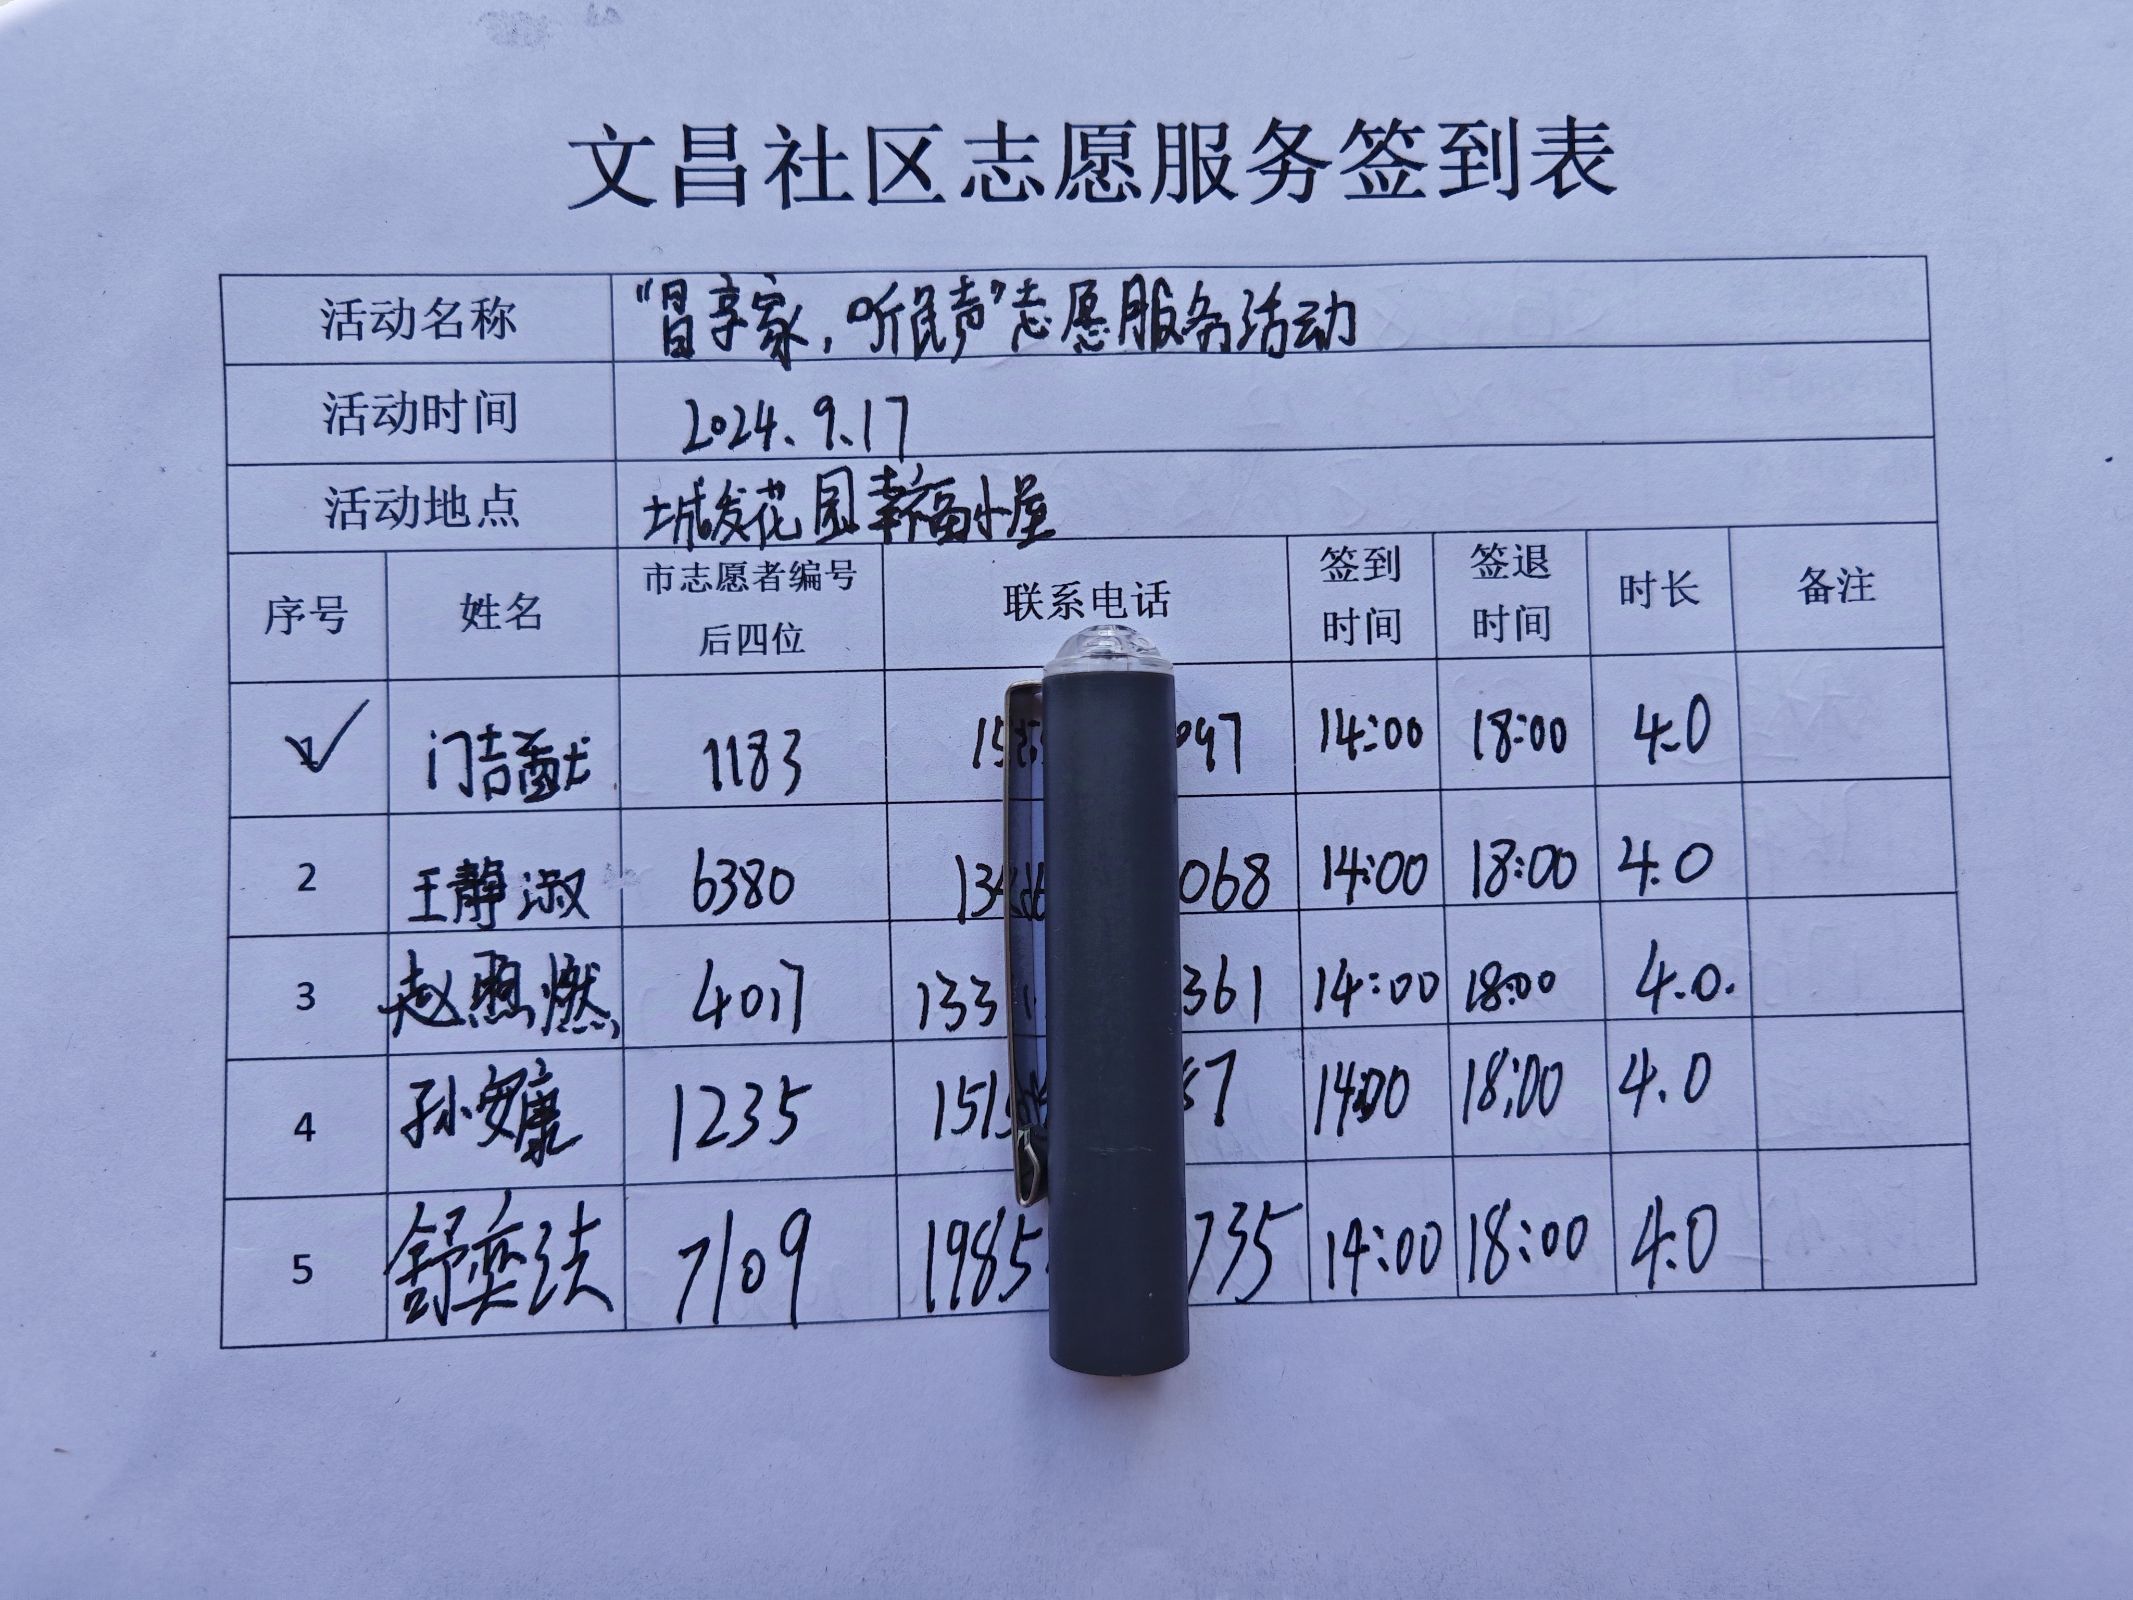 文昌社区志愿服务签到表
活动名称 “昌享家，听民声”志愿服务活动
活动时间 2024.9.17
活动地点 城发花园幸福小屋
序号 姓名 市志愿者编号后四位 联系电话 签到时间 签退时间 时长 备注
1 门喆 1183 15 097 14:00 18:00 4.0
2 王静淑 6380 13 068 14:00 18:00 4.0
3 赵煦燃 4017 133 361 14:00 18:00 4.0.
4 孙安康 1235 151 7 14:00 18:00 4.0
5 舒奕法 7109 1985 735 14:00 18:00 4.0